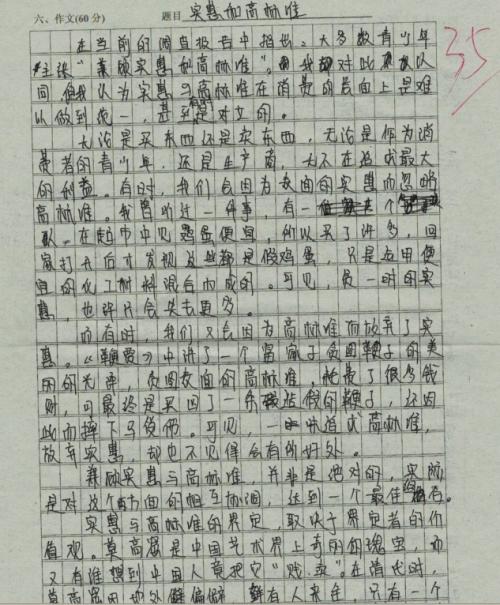 六、作文(60分) 题目 实惠和高标准
35
在当前的调查报告中指出,大多数青少年
主张“兼顾实惠和高标准”。我对此不以
同,但我认为实惠与高标准在消费的层面上是难
以做到统一,甚至是对立的。
无论是买东西还是卖东西,无论是作为消
费者的青少年,还是生产商,无不在追求最大
的利益。有时,我们会因为表面的实惠而忽略
高标准。我曾听过一件事,有一个
队。在超市中见鸡蛋便宜,所以买了许多,回
家打开后才发现这些都是假鸡蛋,只是应用便
宜的化工材料混合而成的。可见,贪一时的实
惠,也许只会失去更多。
而有时,我们又会因为高标准而放弃了实
惠。《鞭爱》中讲了一个富家子贪图鞭子的美
丽的光泽,贪图表面的高标准,耗费了很多钱
财,可最终是买回了一条假的鞭子,还因
此而摔下马负伤。可见,一味追求高标准,
放弃实惠,却也不见得会有的好处。
兼顾实惠与高标准,并非是绝对的,实际
是对这个方面的相互协调,达到一个最佳
实惠与高标准的界定,取决于界定者的价
值观。莫高窟是中国艺术界上奇丽的瑰宝,而
又有谁想到中国人竟把它“贱卖”。在清代时,
莫高窟因地处偏僻,鲜有人来往,只有一个